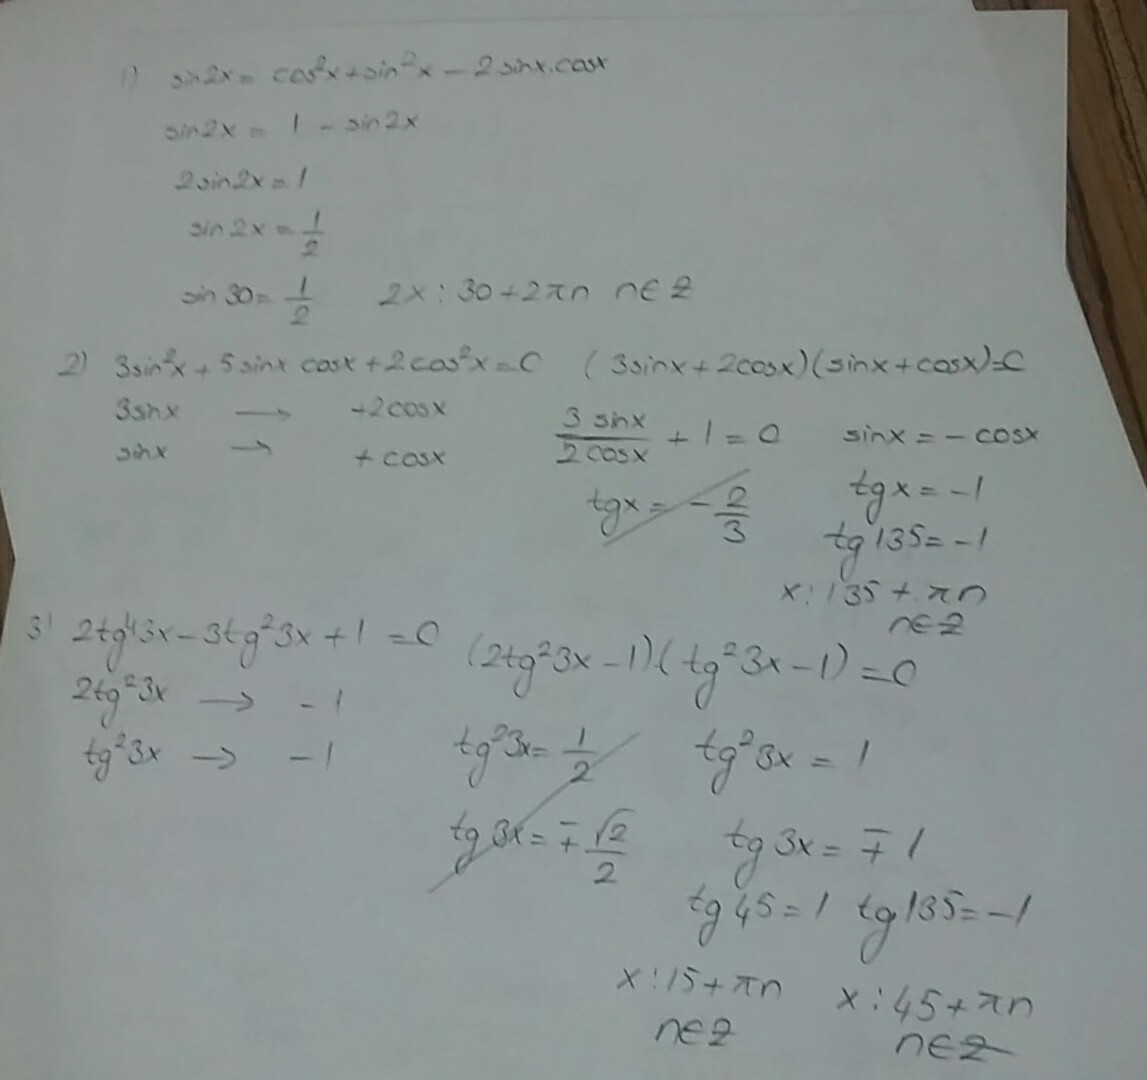 1) sin2x = cos²x + sin²x - 2 sinx.cosx
sin2x = 1 - sin2x
2sin2x = 1
sin 2x = 1/2
sin 30 = 1/2 2x : 30 + 2πn n∈Z
2) 3sin²x + 5 sinx cosx + 2cos²x = 0 (3sinx + 2cosx)(sinx + cosx) = 0
3sinx → +2cosx
sinx → + cosx
3 sinx/2 cosx + 1 = 0 sinx = - cosx
tgx = - 2/3 tgx = -1
tg 135 = -1
x : 135 + πn
n∈Z
3) 2tg⁴3x - 3tg²3x + 1 = 0 (2tg²3x - 1)(tg²3x - 1) = 0
2tg²3x → -1
tg²3x → -1
tg²3x = 1/2 tg²3x = 1
tg 3x = ∓ √2/2 tg 3x = ∓ 1
tg 45 = 1 tg 135 = -1
x : 15 + πn x : 45 + πn
n∈Z n∈Z